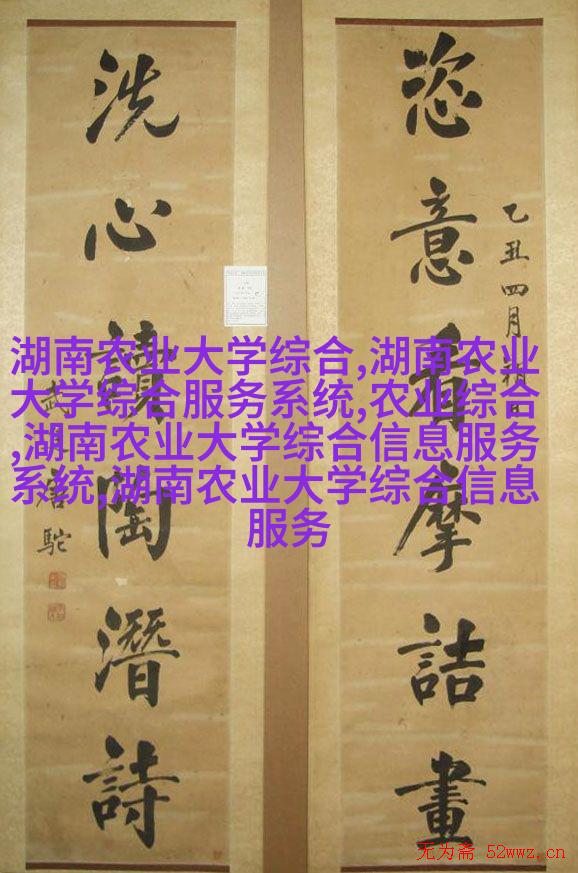 恣意看摩詰畫
乙丑四月
洗心讀陶潛詩
武進唐駝
湖南农业大学综合,湖南农业
大学综合服务系统,农业综合
,湖南农业大学综合信息服务
系统,湖南农业大学综合信息
服务
无为斋 52wwz.cn